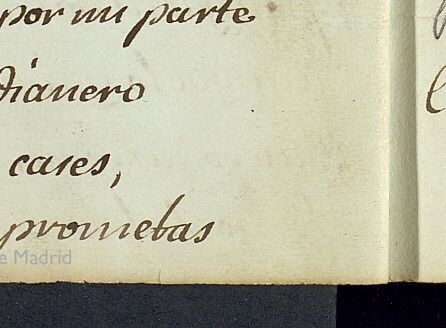 por mi parte
dianero
cases,
prometas
e Madrid